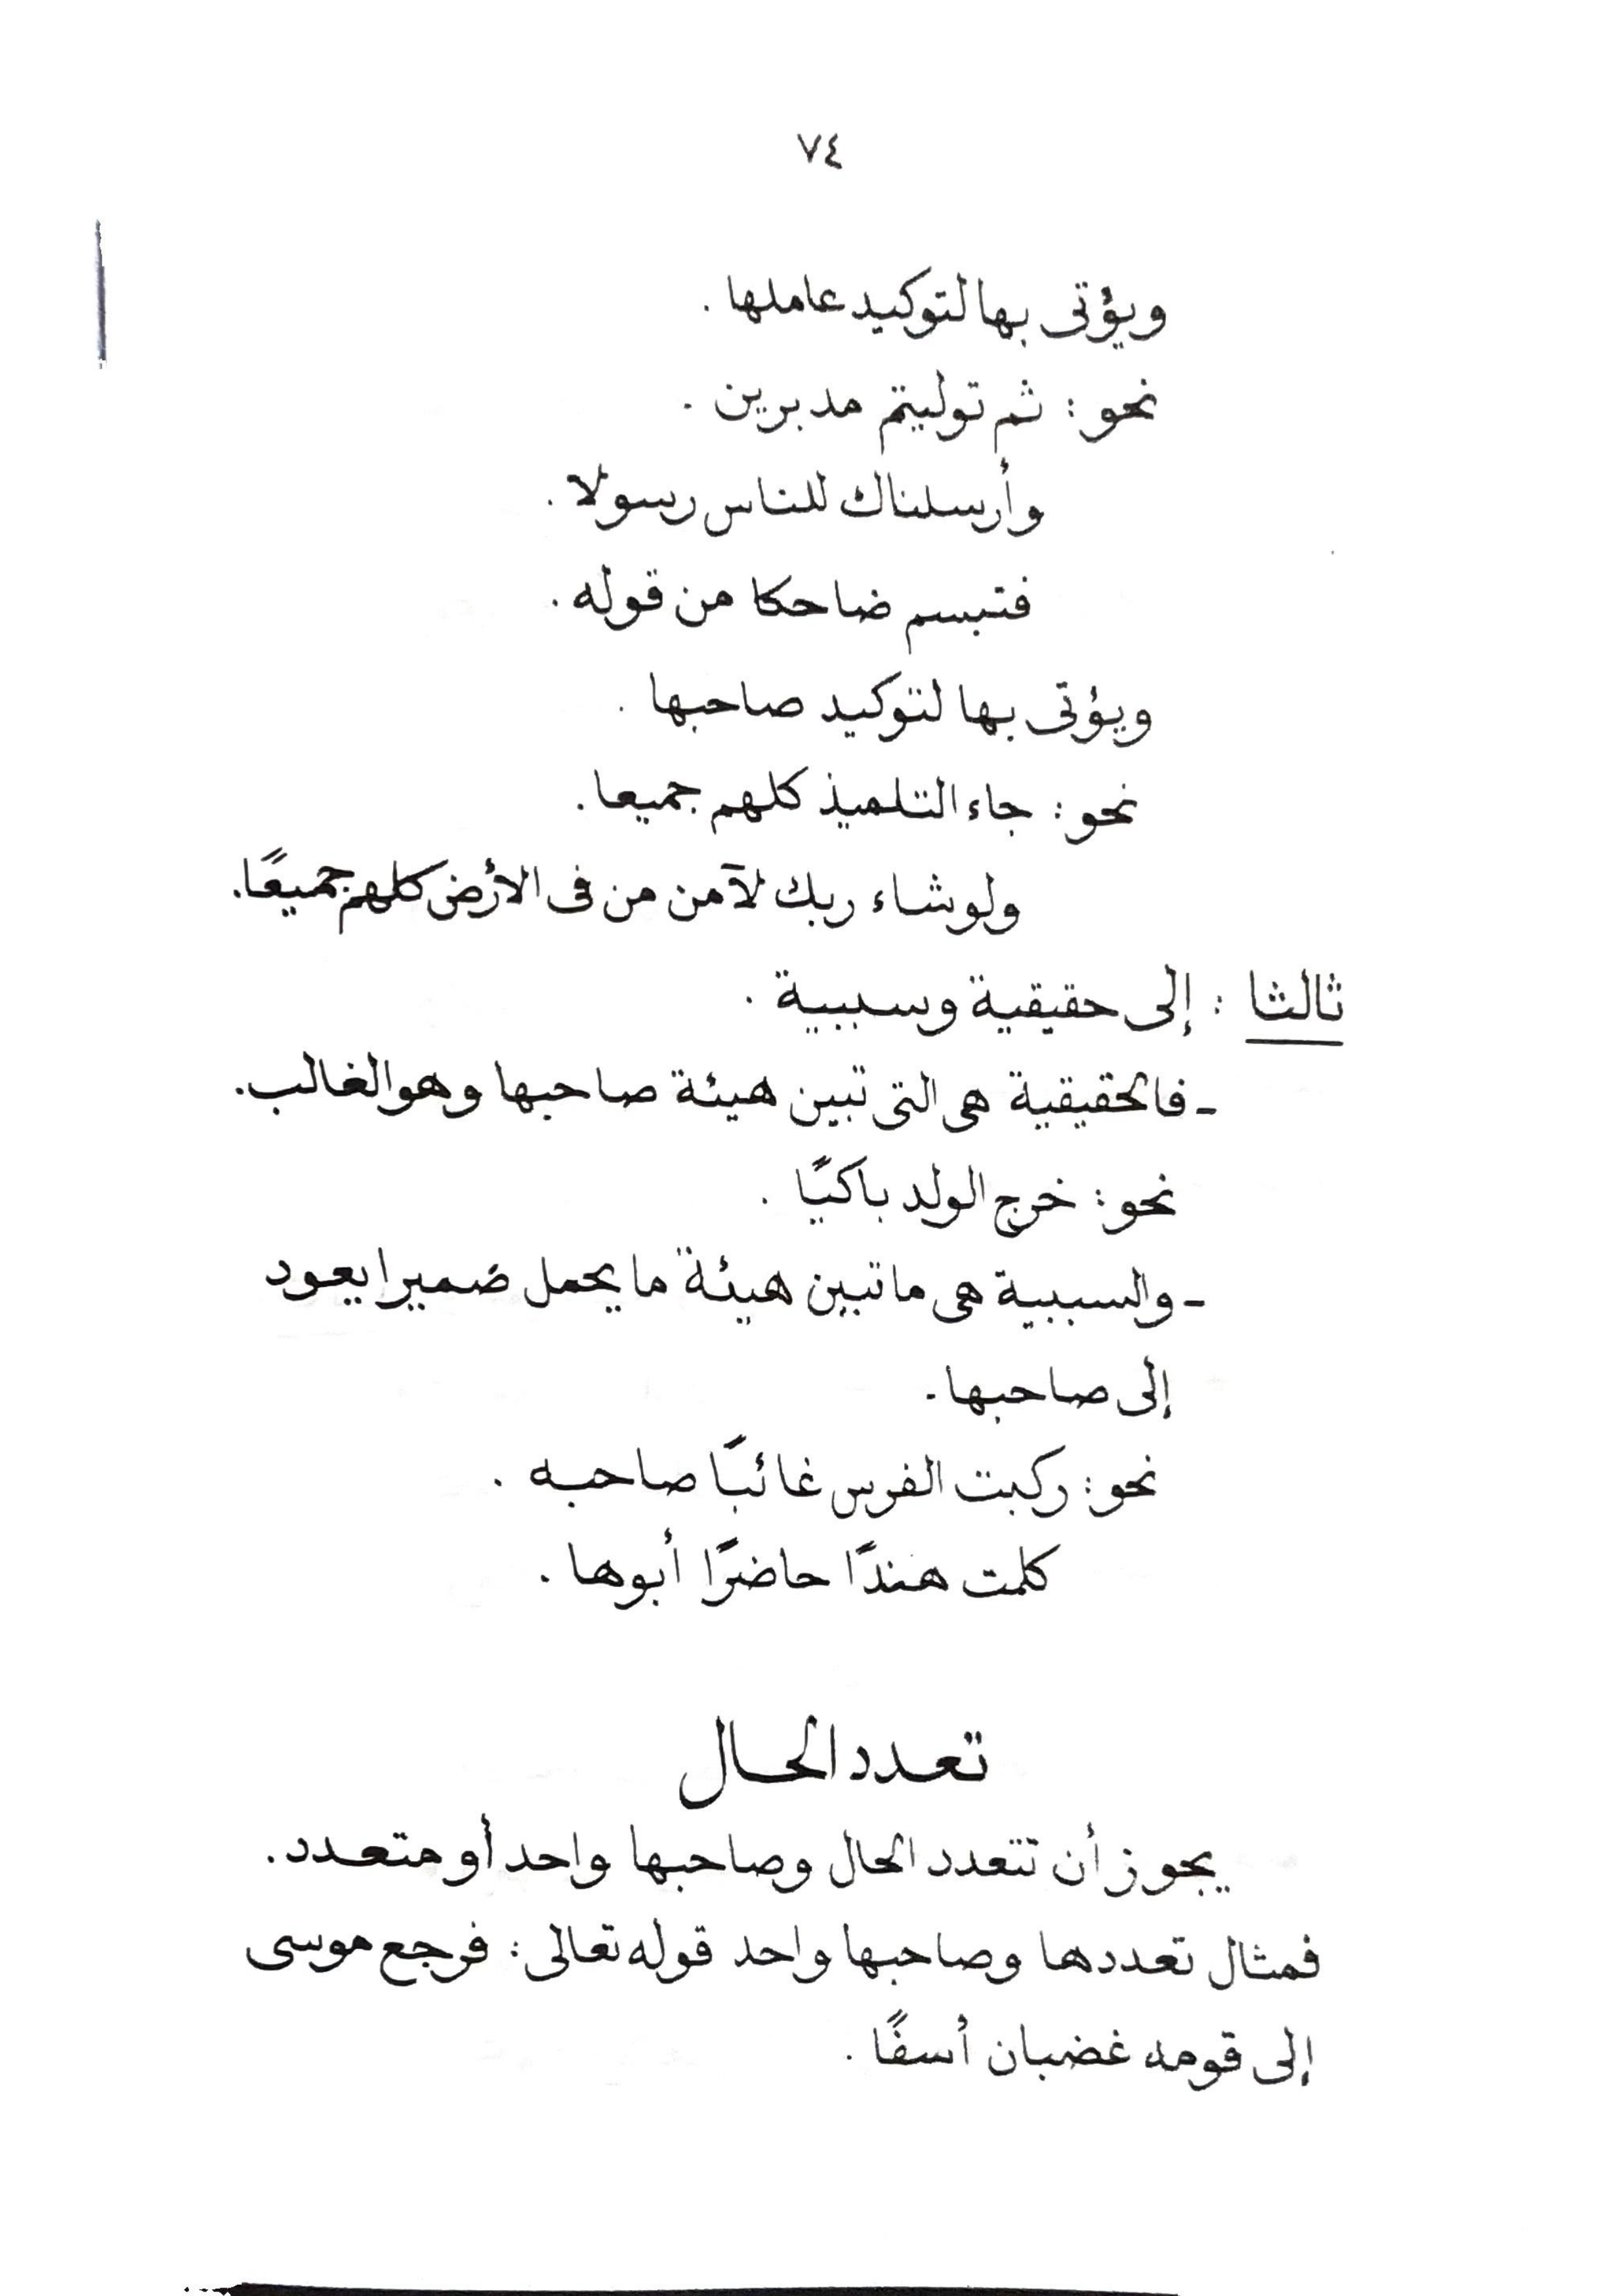 ٧٤
ويؤتى بها لتوكيد عاملها .
نحو : ثم توليتم مدبرين .
وأرسلناك للناس رسولا .
فتبسم ضاحكا من قوله .
ويؤتى بها لتوكيد صاحبها .
نحو : جاء التلميذ كلهم جميعا .
ولو شاء ربك لآمن من فى الأرض كلهم جميعًا.
ثالثا : إلى حقيقية وسببية .
- فالحقيقية هى التى تبين هيئة صاحبها وهو الغالب.
نحو : خرج الولد باكيًا .
- والسببية هى ما تبين هيئة ما يحمل ضميرا يعود
إلى صاحبها.
نحو : ركبت الفرس غائبًا صاحبه .
كلمت هندًا حاضرًا أبوها .
تعدد الحال
يجوز أن تتعدد الحال وصاحبها واحد أو متعدد.
فمثال تعددها وصاحبها واحد قوله تعالى : فرجع موسى
إلى قومه غضبان أسفًا .